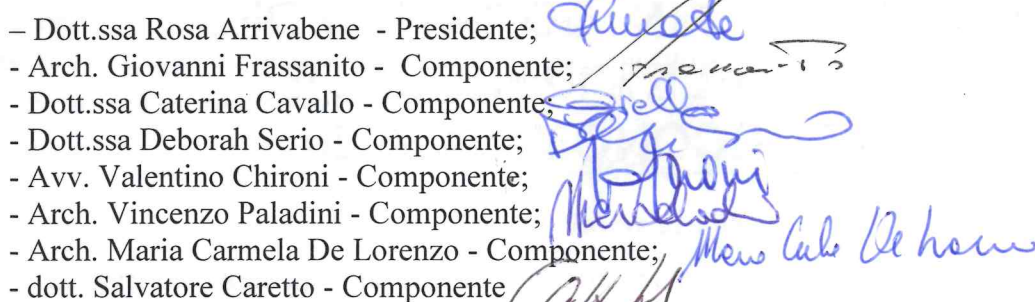 – Dott.ssa Rosa Arrivabene - Presidente;
- Arch. Giovanni Frassanito - Componente;
- Dott.ssa Caterina Cavallo - Componente;
- Dott.ssa Deborah Serio - Componente;
- Avv. Valentino Chironi - Componente;
- Arch. Vincenzo Paladini - Componente;
- Arch. Maria Carmela De Lorenzo - Componente;
- dott. Salvatore Caretto - Componente